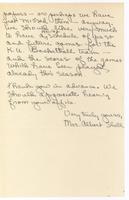 papers — or perhaps we have
just missed them. Anyway,
we should like very much
to have a schedule of past
and future games for the
K.U. Basketball team —
and the scores of the games
which have been played
already this season.
Thank you in advance. We
should appreciate hearing
from your office.
Very truly yours,
Mrs. Albert